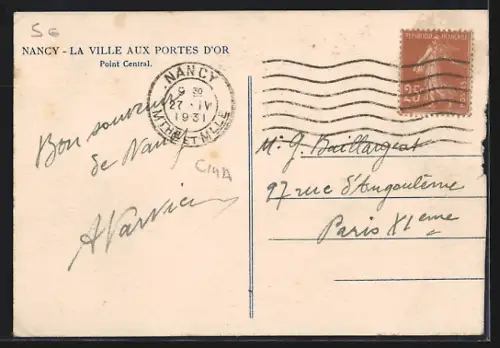 56
NANCY - LA VILLE AUX PORTES D'OR
Point Central.
REPUBLIQUE FRANÇAISE
25
NANCY
9 30
27 - IV
1931
MTHE ET MLLE
Bon souvenir
de Nancy
C14A
M. G. Baillargeat
97 rue d'Angoulême
Paris XIeme